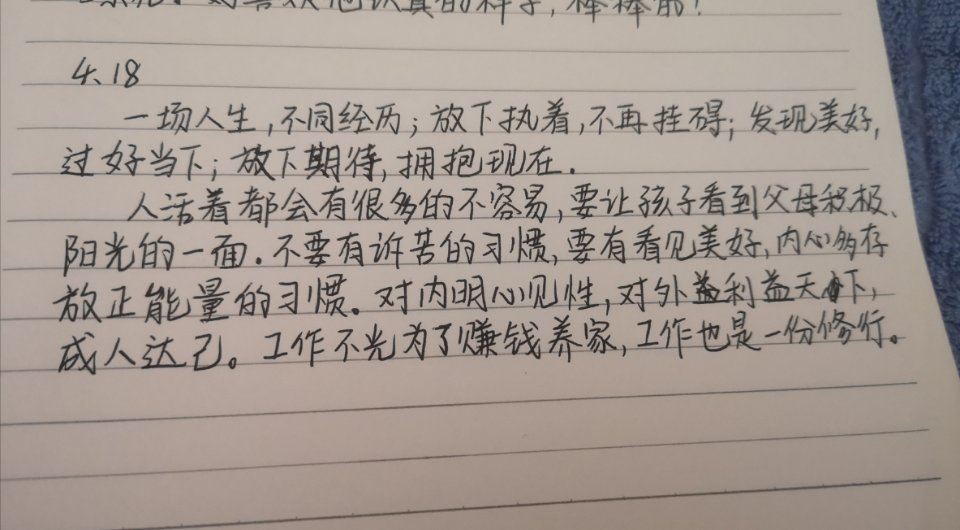 她喜欢他认真的样子,棒棒的!
4、18
一场人生,不同经历;放下执着,不再挂碍;发现美好,
过好当下;放下期待,拥抱现在.
人活着都会有很多的不容易,要让孩子看到父母积极、
阳光的一面.不要有诉苦的习惯,要有看见美好,内心多存
放正能量的习惯。对内明心见性,对外利益天下,
成人达己。工作不光为了赚钱养家,工作也是一份修行。